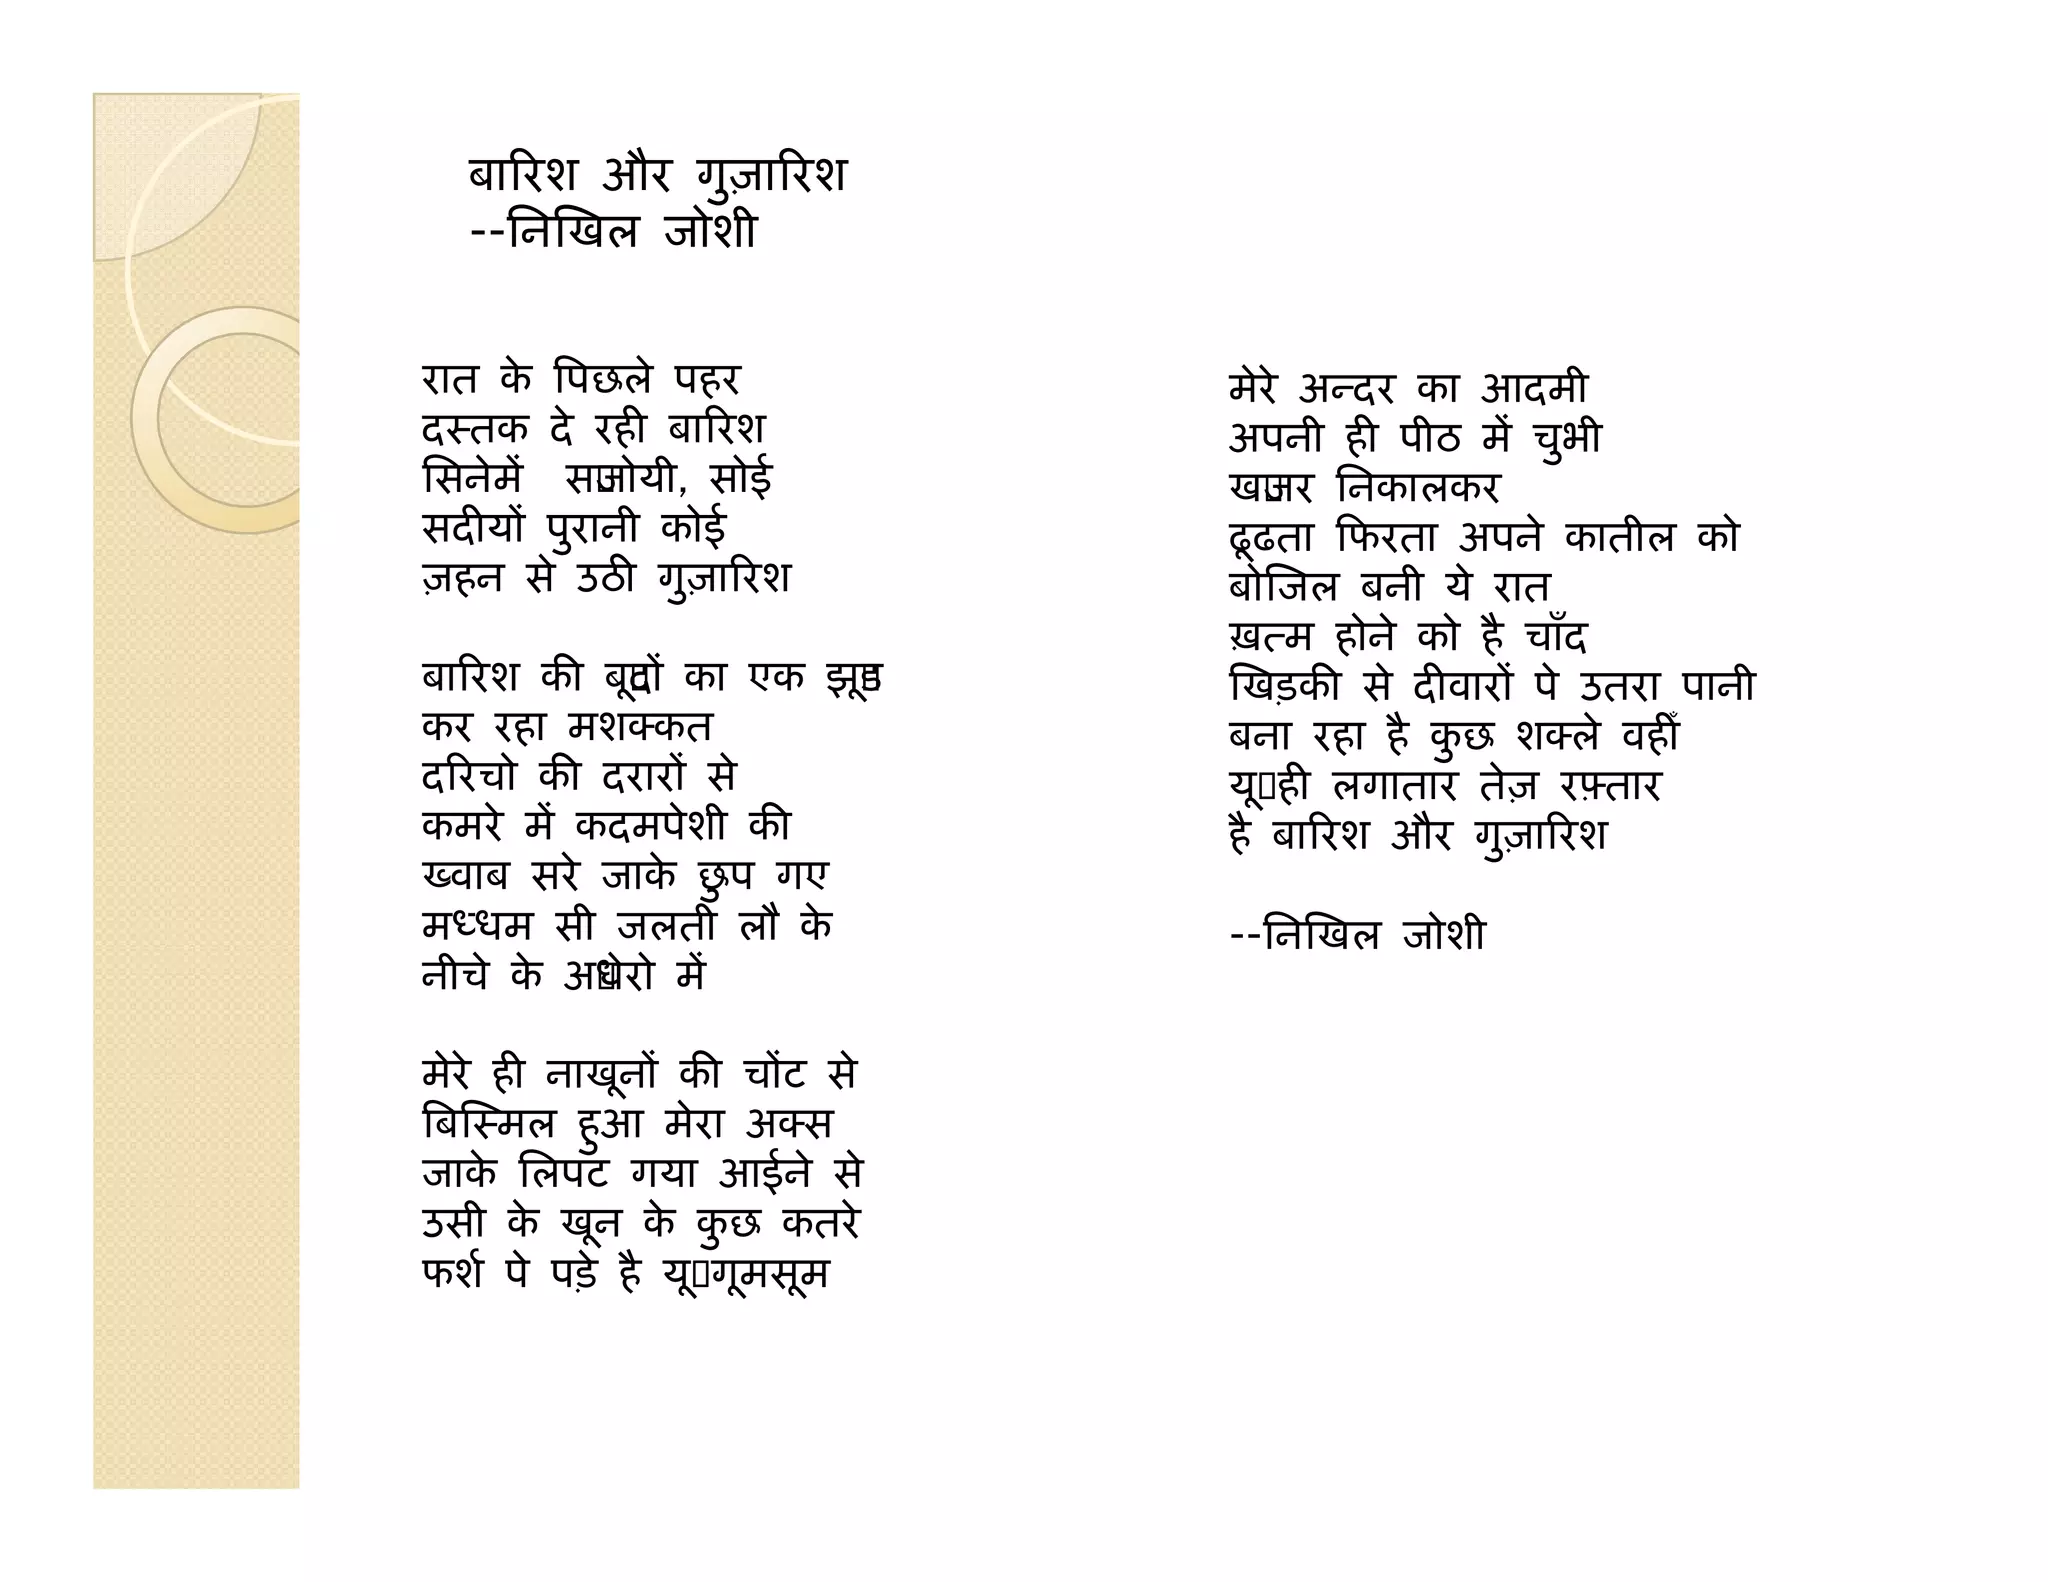 बारिश और गुज़ारिश
--निखिल जोशी
रात के पिछले पहर
दस्तक दे रही बारिश
सिनेमें संजोयी, सोई
सदीयों पुरानी कोई
ज़हन से उठी गुज़ारिश
बारिश की बूंदों का एक झूंड
कर रहा मशक्कत
दरिचो की दरारों से
कमरे में कदमपेशी की
ख्वाब सरे जाके छुप गए
मध्धम सी जलती लौ के
नीचे के अंधेरो में
मेरे ही नाखूनों की चोंट से
बिस्मिल हुआ मेरा अक्स
जाके लिपट गया आईने से
उसी के खून के कुछ कतरे
फर्श पे पड़े है यूं गूमसूम
मेरे अन्दर का आदमी
अपनी ही पीठ में चुभी
खंजर निकालकर
ढूढता फिरता अपने कातील को
बोजिल बनी ये रात
ख़त्म होने को है चाँद
खिड़की से दीवारों पे उतरा पानी
बना रहा है कुछ शक्ले वहीँ
यूंही लगातार तेज़ रफ़्तार
है बारिश और गुज़ारिश
--निखिल जोशी